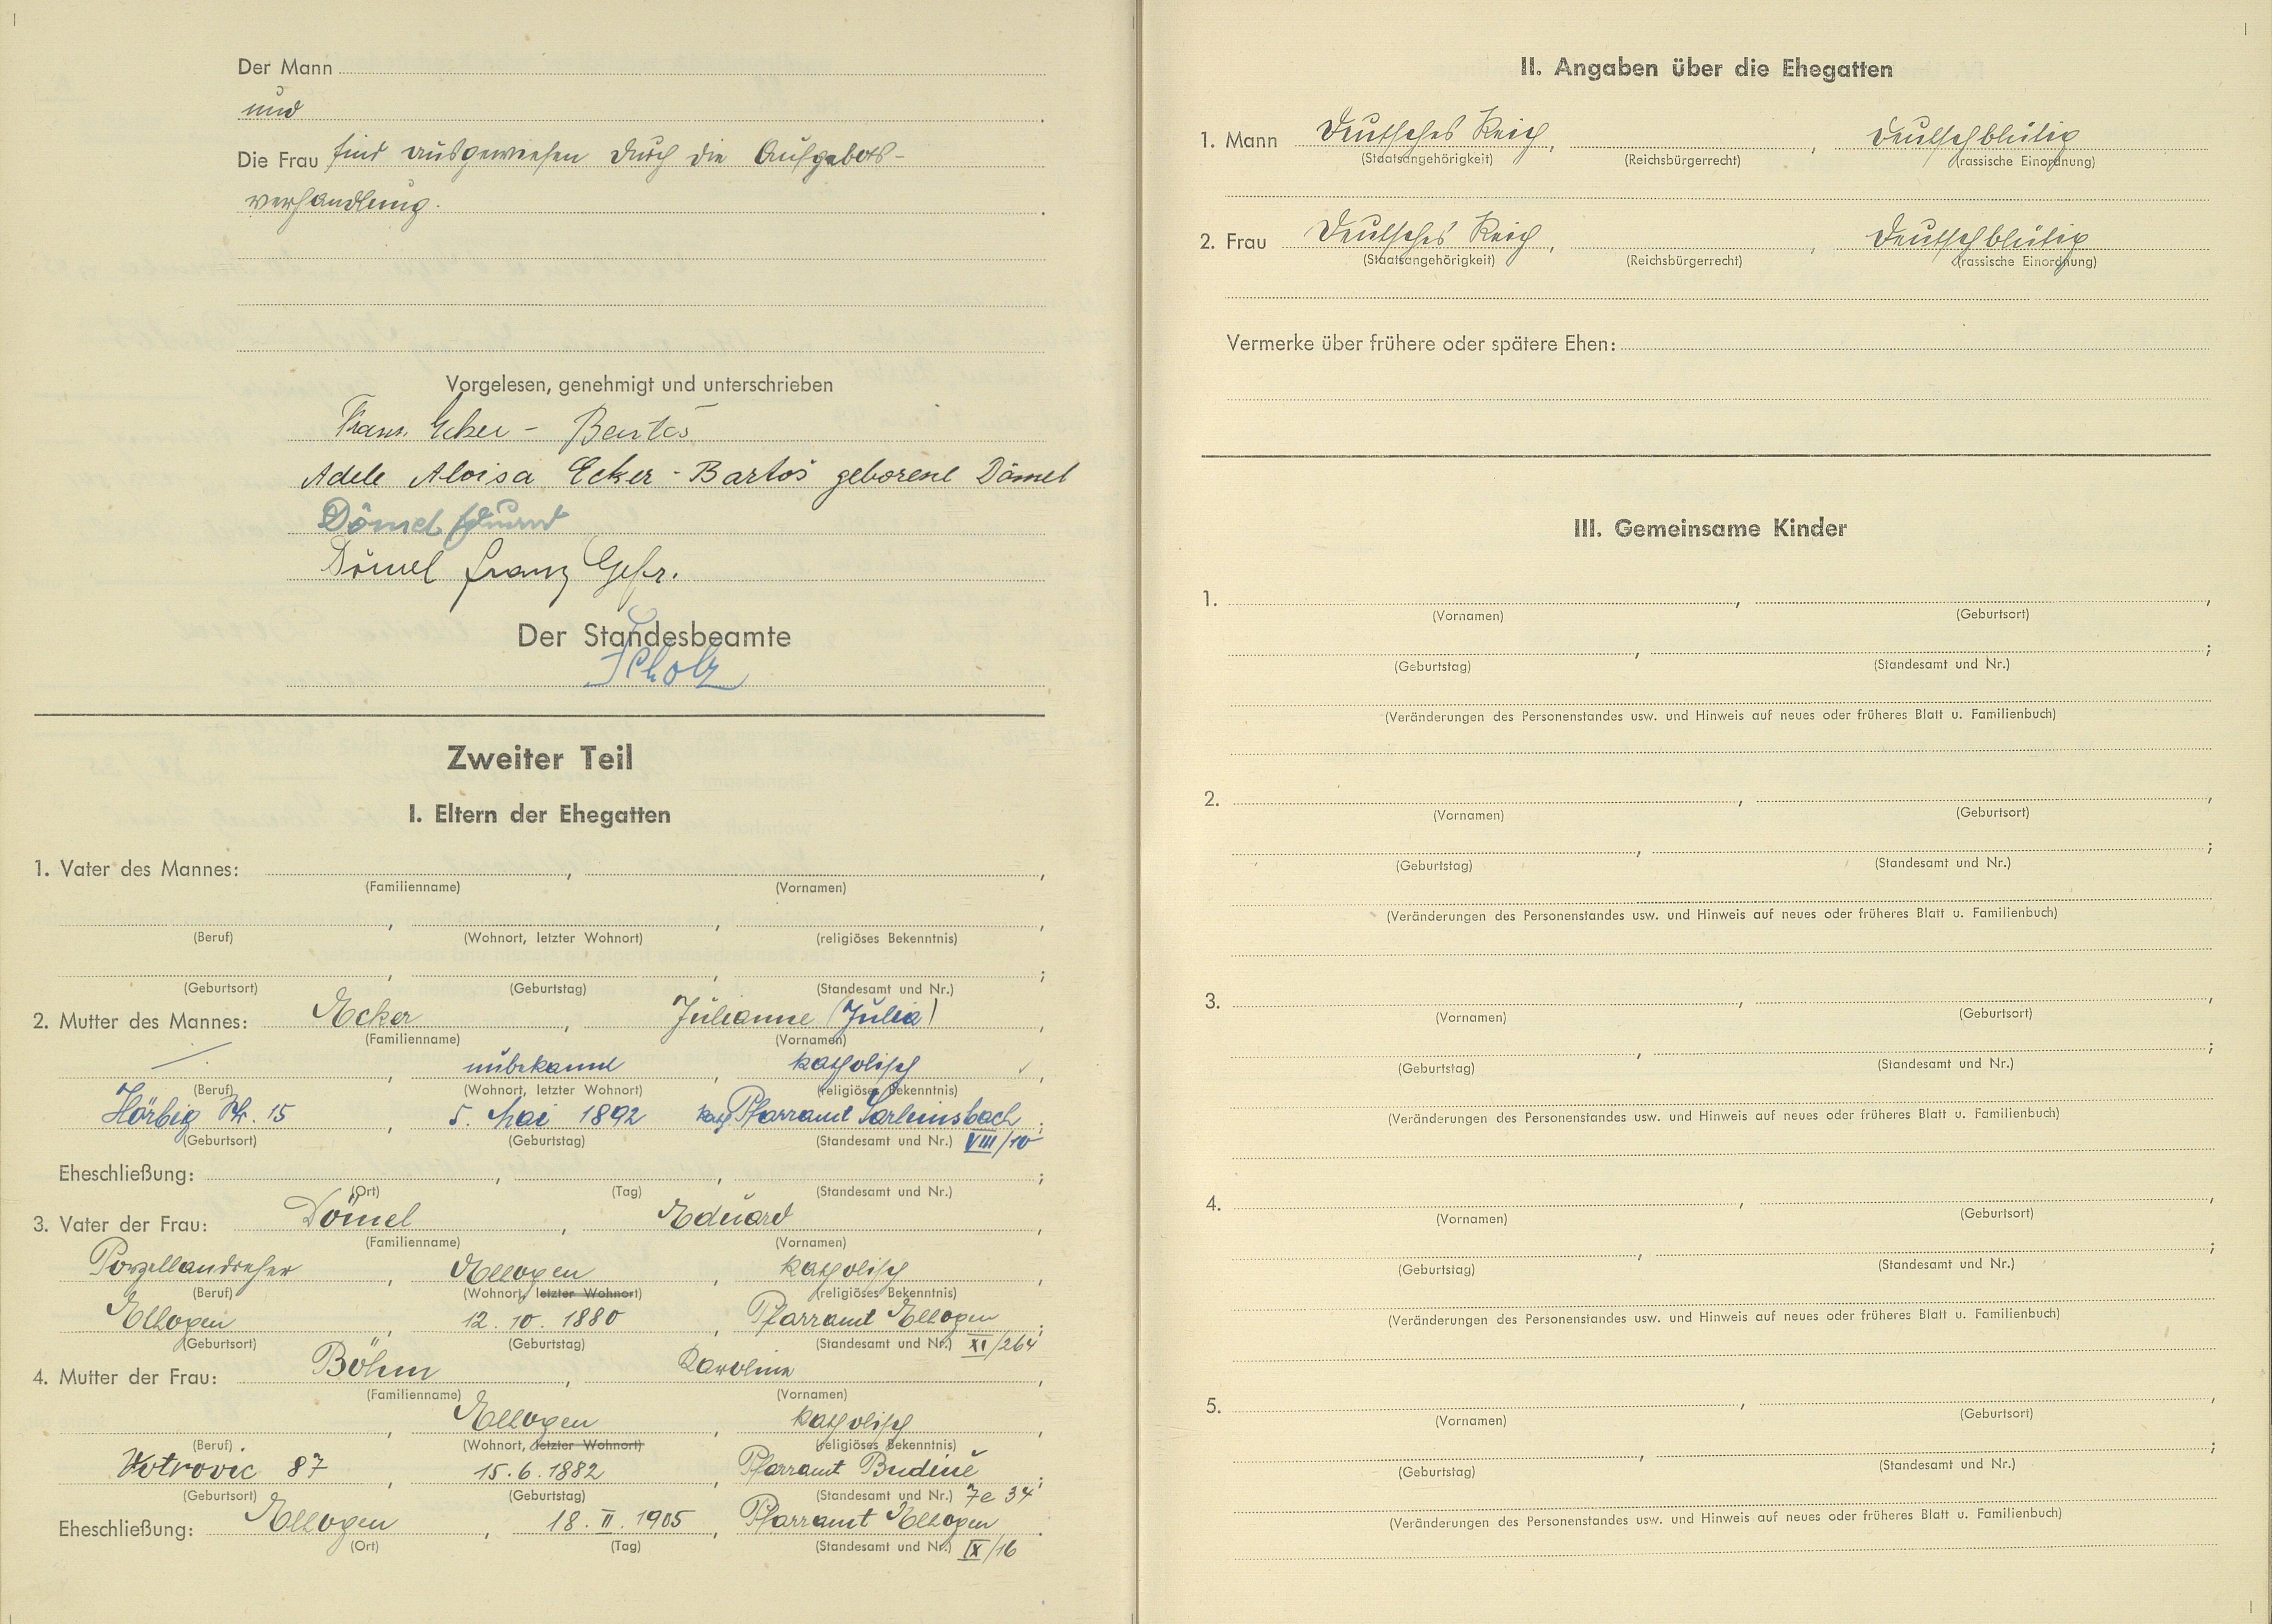 Der Mann
und
Die Frau sind ausgewiesen durch die Aufgebots-
verhandlung.
Vorgelesen, genehmigt und unterschrieben
Franz Ecker - Bartoš
Adele Aloisa Ecker - Bartoš geborene Dömel
Dömel Eduard
Dömel Franz Gefr.
Der Standesbeamte
Scholz
Zweiter Teil
I. Eltern der Ehegatten
1. Vater des Mannes: , ,
(Familienname) (Vornamen)
, , ,
(Beruf) (Wohnort, letzter Wohnort) (religiöses Bekenntnis)
, , ;
(Geburtsort) (Geburtstag) (Standesamt und Nr.)
2. Mutter des Mannes: Ecker , Julianne (Julia) ,
(Familienname) (Vornamen)
— , unbekannt , katholisch ,
(Beruf) (Wohnort, letzter Wohnort) (religiöses Bekenntnis)
Hörbig Nr. 15 , 5. Mai 1892 kath. Pfarramt Sarleinsbach ;
(Geburtsort) (Geburtstag) (Standesamt und Nr.) VIII/10
Eheschließung: , , ;
(Ort) (Tag) (Standesamt und Nr.)
3. Vater der Frau: Dömel , Eduard ,
(Familienname) (Vornamen)
Porzellandreher , Ellogen , katholisch ,
(Beruf) (Wohnort, letzter Wohnort) (religiöses Bekenntnis)
Ellogen , 12. 10. 1880 , Pfarramt Ellogen ;
(Geburtsort) (Geburtstag) (Standesamt und Nr.) XI/264
4. Mutter der Frau: Böhm , Karolina ,
(Familienname) (Vornamen)
, Ellogen , katholisch ,
(Beruf) (Wohnort, letzter Wohnort) (religiöses Bekenntnis)
Votrovic 87 , 15. 6. 1882 , Pfarramt Budině ;
(Geburtsort) (Geburtstag) (Standesamt und Nr.) 7e 34
Eheschließung: Ellogen , 18. II. 1905 , Pfarramt Ellogen .
(Ort) (Tag) (Standesamt und Nr.) IX/16
II. Angaben über die Ehegatten
1. Mann Deutsches Reich , , Deutschblütig
(Staatsangehörigkeit) (Reichsbürgerrecht) (rassische Einordnung)
2. Frau Deutsches Reich , , Deutschblütig
(Staatsangehörigkeit) (Reichsbürgerrecht) (rassische Einordnung)
Vermerke über frühere oder spätere Ehen:
III. Gemeinsame Kinder
1. , ,
(Vornamen) (Geburtsort)
, ;
(Geburtstag) (Standesamt und Nr.)
(Veränderungen des Personenstandes usw. und Hinweis auf neues oder früheres Blatt u. Familienbuch)
2. , ,
(Vornamen) (Geburtsort)
, ;
(Geburtstag) (Standesamt und Nr.)
(Veränderungen des Personenstandes usw. und Hinweis auf neues oder früheres Blatt u. Familienbuch)
3. , ,
(Vornamen) (Geburtsort)
, ;
(Geburtstag) (Standesamt und Nr.)
(Veränderungen des Personenstandes usw. und Hinweis auf neues oder früheres Blatt u. Familienbuch)
4. , ,
(Vornamen) (Geburtsort)
, ;
(Geburtstag) (Standesamt und Nr.)
(Veränderungen des Personenstandes usw. und Hinweis auf neues oder früheres Blatt u. Familienbuch)
5. , ,
(Vornamen) (Geburtsort)
, ;
(Geburtstag) (Standesamt und Nr.)
(Veränderungen des Personenstandes usw. und Hinweis auf neues oder früheres Blatt u. Familienbuch)